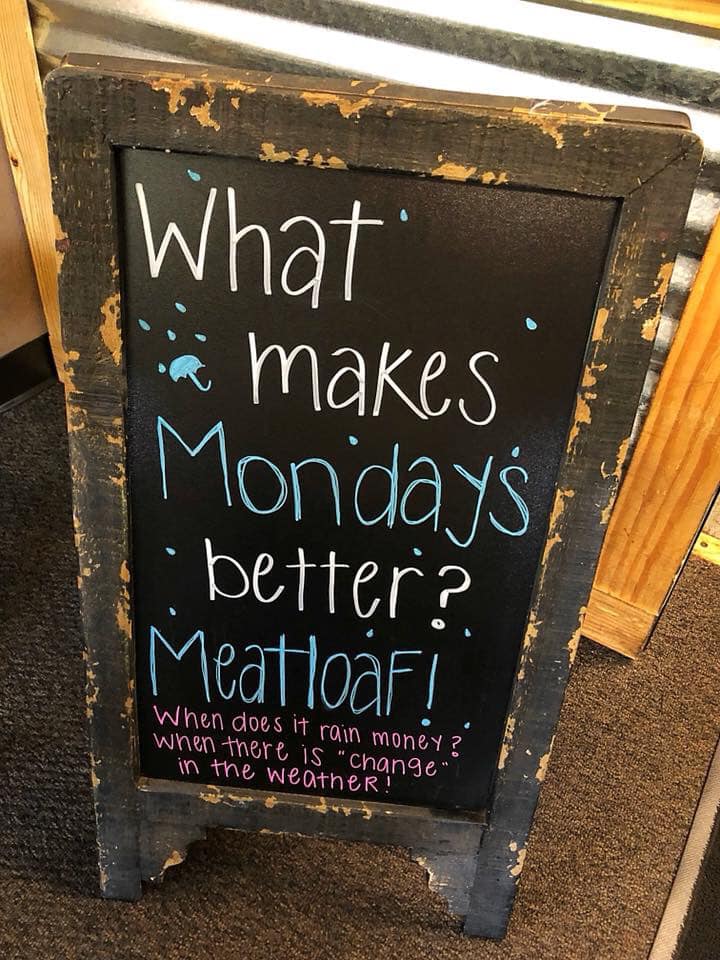 What
makes
Mondays
better?
Meatloaf!
When does it rain money?
when there is "change"
in the weather!